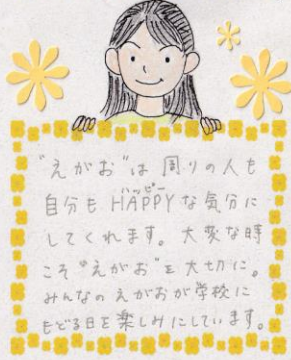 "えがお"は 周りの人も
自分も HAPPY(ハッピー)な気分に
してくれます。大変な時
こそ"えがお"を大切に。
みんなのえがおが学校に
もどる日を楽しみにしています。